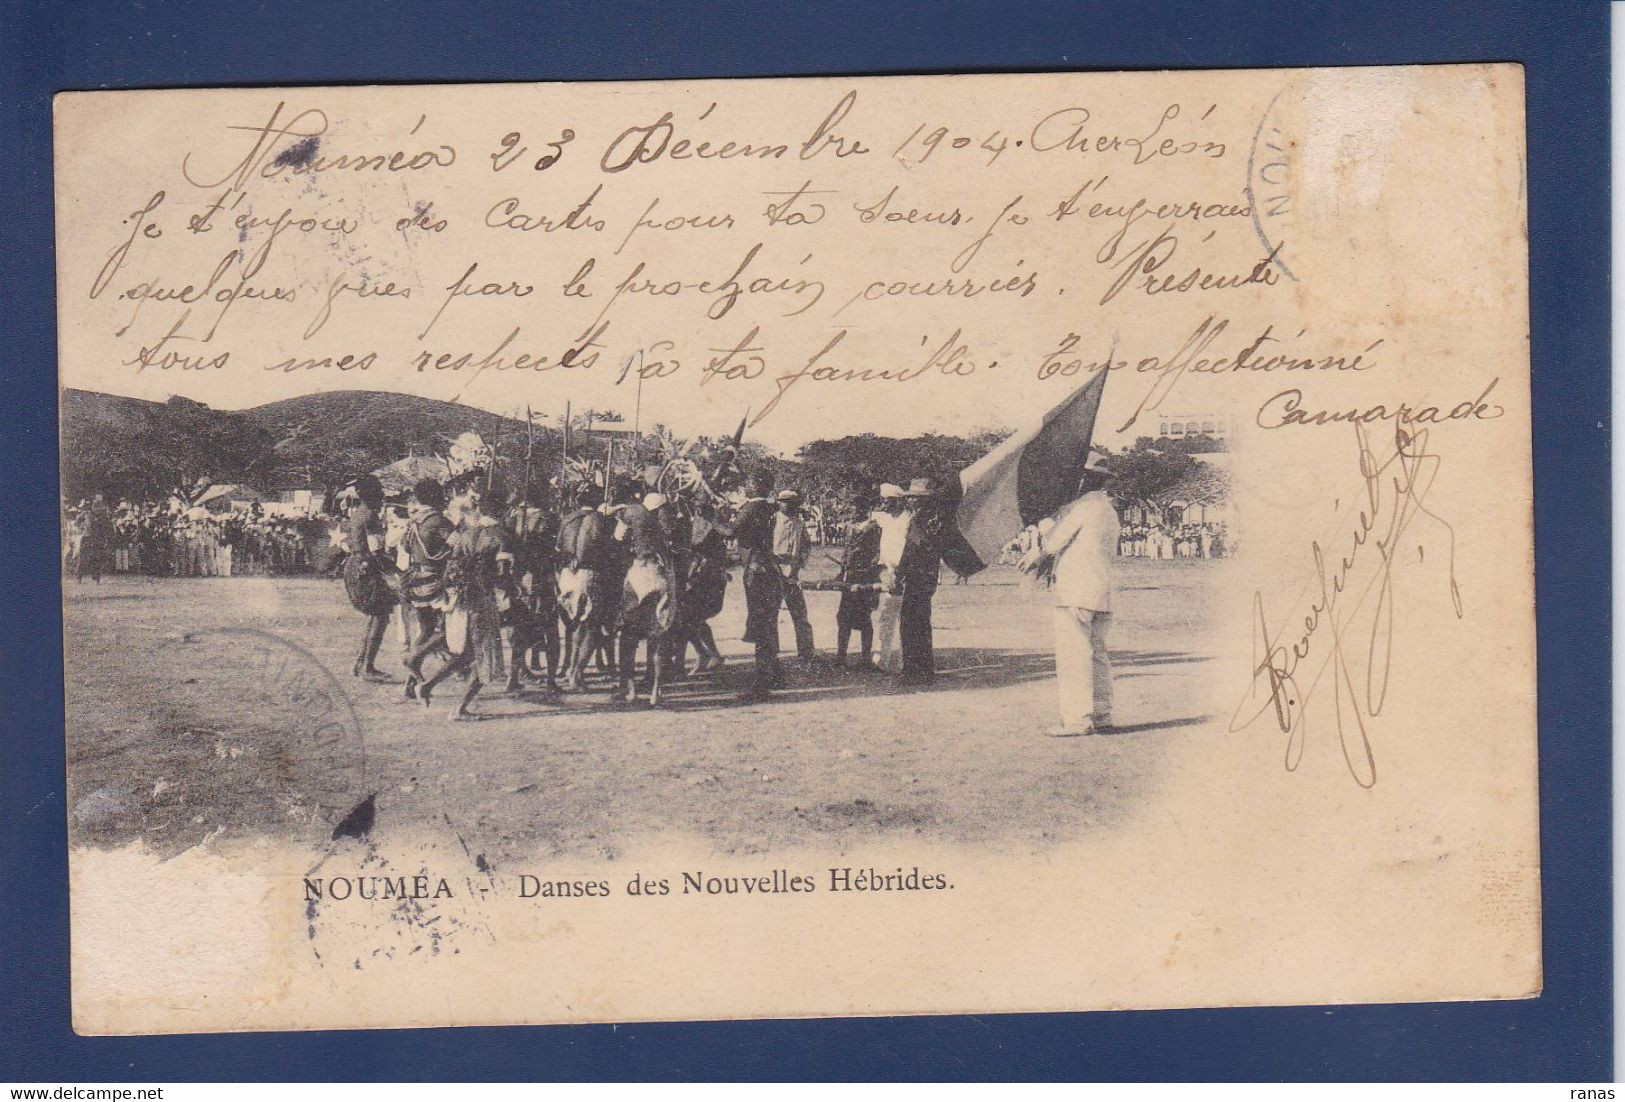 Nouméa 23 Décembre 1904. Cher Léon
Je t'envoie des Cartes pour ta Soeur. Je t'enverrais
quelques vues par le prochain courrier. Présente
tous mes respects à ta famille. Ton affectionné
Camarade
NOUMÉA - Danses des Nouvelles Hébrides.
ranas